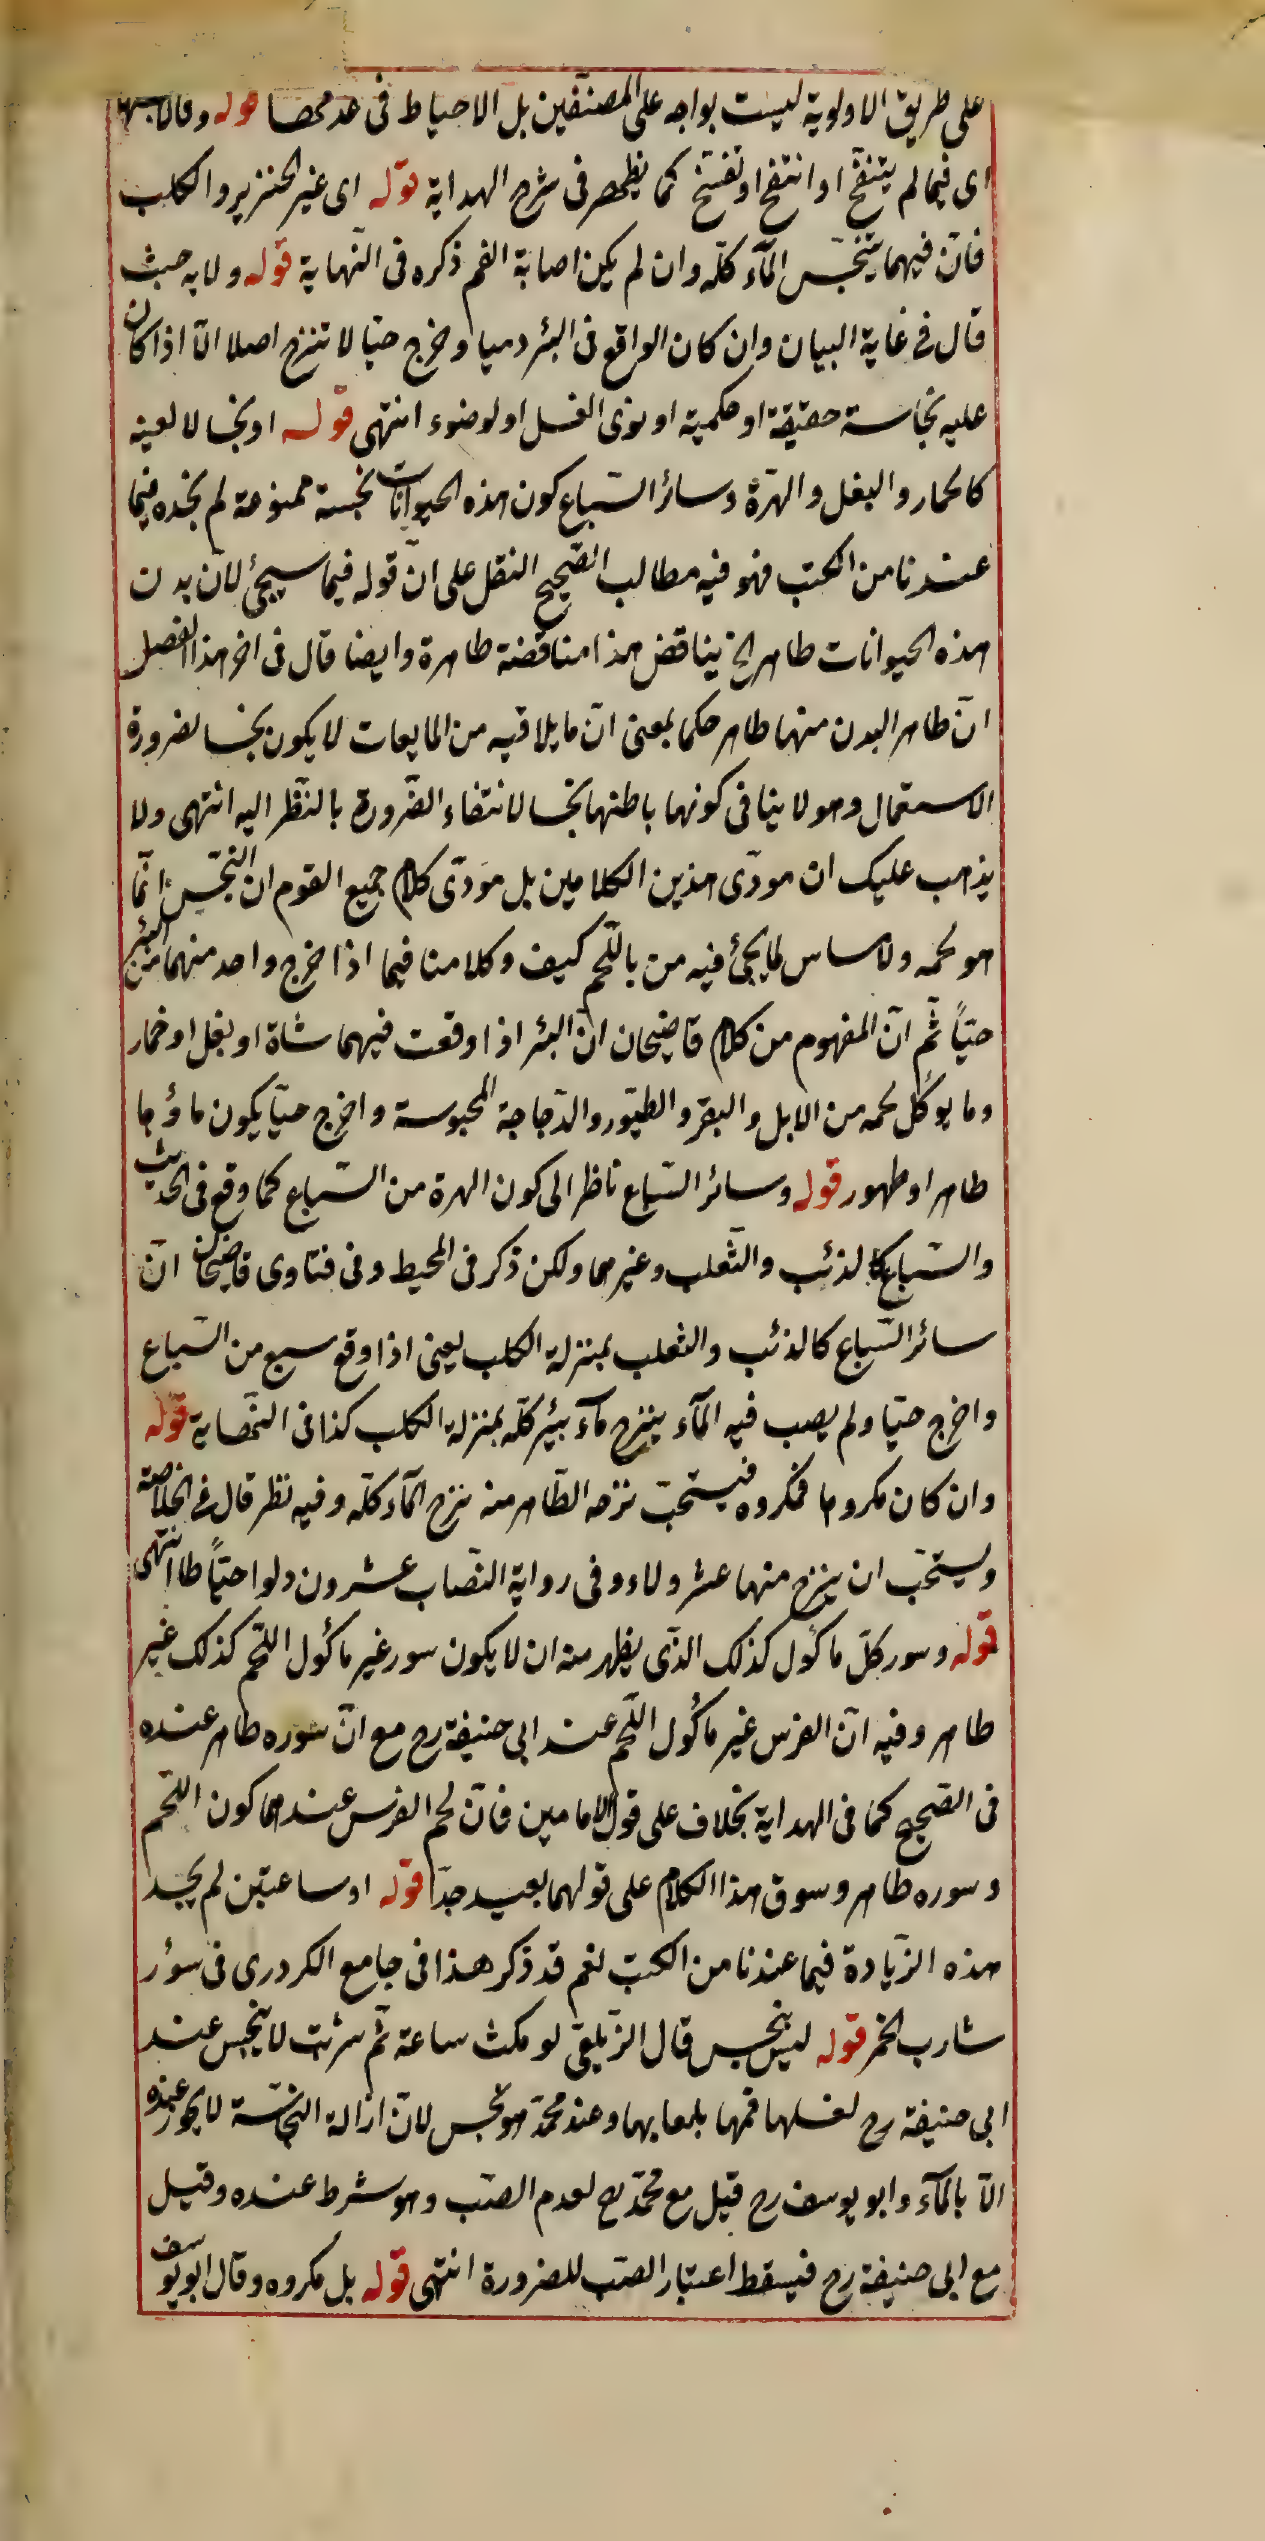 على طريق الاولوية ليست بواجبه على المصنفين بل الاحتياط فى عدمحصا قوله وقالا
اى فيما لم ينتفخ او انتفخ او تفسخ كما يظهر فى شرح الهداية قوله اى غير الخنزير والكلب
فانّ فيهما يتنجّس المآء كلّه وان لم يكن اصابة الفم ذكره فى النّهاية قوله ولا به حيث
قال فے غاية البيان وان كان الواقع فى البئر دميا وخرج حيّا لا تنزح اصلا الّا اذا كان
عليه نجاسة حقيقة او حكمية او نوى الغسل او لوضوء انتهى قوله او نجسا لا لعينه
كالحمار والبغل والهرّة وسائر السّباع كون هذه الحيوانات نجسة ممنوعة لم نجده فيما
عندنا من الكتب فهو فيه مطالب التّصحيح النقل على انّ قوله فيما سيجئ لانّ بدن
هذه الحيوانات طاهر الخ يناقض هذا مناقضة ظاهرة وايضا قال فى اخر هذا الفصل
انّ ظاهر البدن منها طاهر حكما بمعنى انّ ما يلاقيه من المايعات لا يكون نجسا لضرورة
الاستعمال وهو لا ينافى كونها باطنها نجسا لانتفاء الضّرورة بالنّظر اليه انتهى ولا
يذهب عليك ان مودّى هذين الكلامين بل مودّى كلام جميع القوم ان النّجس انّما
هو لحمه ولا مساس لما يجئ فيه من باللّحم كيف وكلامنا فيما اذا خرج واحد منهما من البئر
حيّاً ثمّ انّ المفهوم من كلام قاضيخان انّ البئر اذا وقعت فيهما شاة او بغل او حمار
وما يوكل لحمه من الابل والبقر والطيّور والدّجاجة المحبوسة واخرج حيّا يكون ماؤها
طاهر او طهور قوله وسائر السّباع ناظر الى كون الهرة من السّباع كما وقع فى الحديث
والسّباع كالذئب والثّعلب وغيرهما ولكن ذكر فى المحيط وفى فتاوى قاضيخان انّ
سائر السّباع كالذئب والثعلب بمنزلة الكلب يعنى اذا وقع سبع من السّباع
واخرج حيّا ولم يصب فيه المآء ينزح مآء بئر كلّه بمنزلة الكلب كذا فى النّهاية قوله
وان كان مكروها فمكروه فيستحبّ نزحه الظّاهر منه نزح المآء كلّه وفيه نظر قال فے الخلاصة
ويستحّب ان ينزح منها عشر ولاء وفى رواية النّصاب عشرون دلوا احتياطا انتهى
قوله وسور كلّ ماكول كذلك الذّى يظهر منه ان لا يكون سور غير ماكول اللّحم كذلك غير
طاهر وفيه انّ الفرس غير ماكول اللّحم عند ابى حنيفة رح مع انّ سوره طاهر عنده
فى الصّحيح كما فى الهداية بخلاف على قول الامامين فانّ لحم الفرس عندهما كون اللّحم
وسوره طاهر وسوق هذا الكلام على قولهما بعيد جدّا قوله او ساعتين لم يجد
هذه الزّيادة فيما عندنا من الكتب نعم قد ذكر هذا فى جامع الكردرى فى سؤر
شارب الخمر قوله ليس بنجس قال الزّيلعى لو مكث ساعة ثمّ شربت لا ينجس عند
ابى حنيفة رح لغسلها فمها بلعابها وعند محمّد هو نجس لانّ ازالة النّجاسة لا يجوز عنده
الّا بالمآء وابو يوسف رح قيل مع محمّد رح لعدم الصّب وهو شرط عنده وقيل
مع ابى حنيفة رح فيسقط اعتبار الصّب للضرورة انتهى قوله بل مكروه وقال ابو يوسف